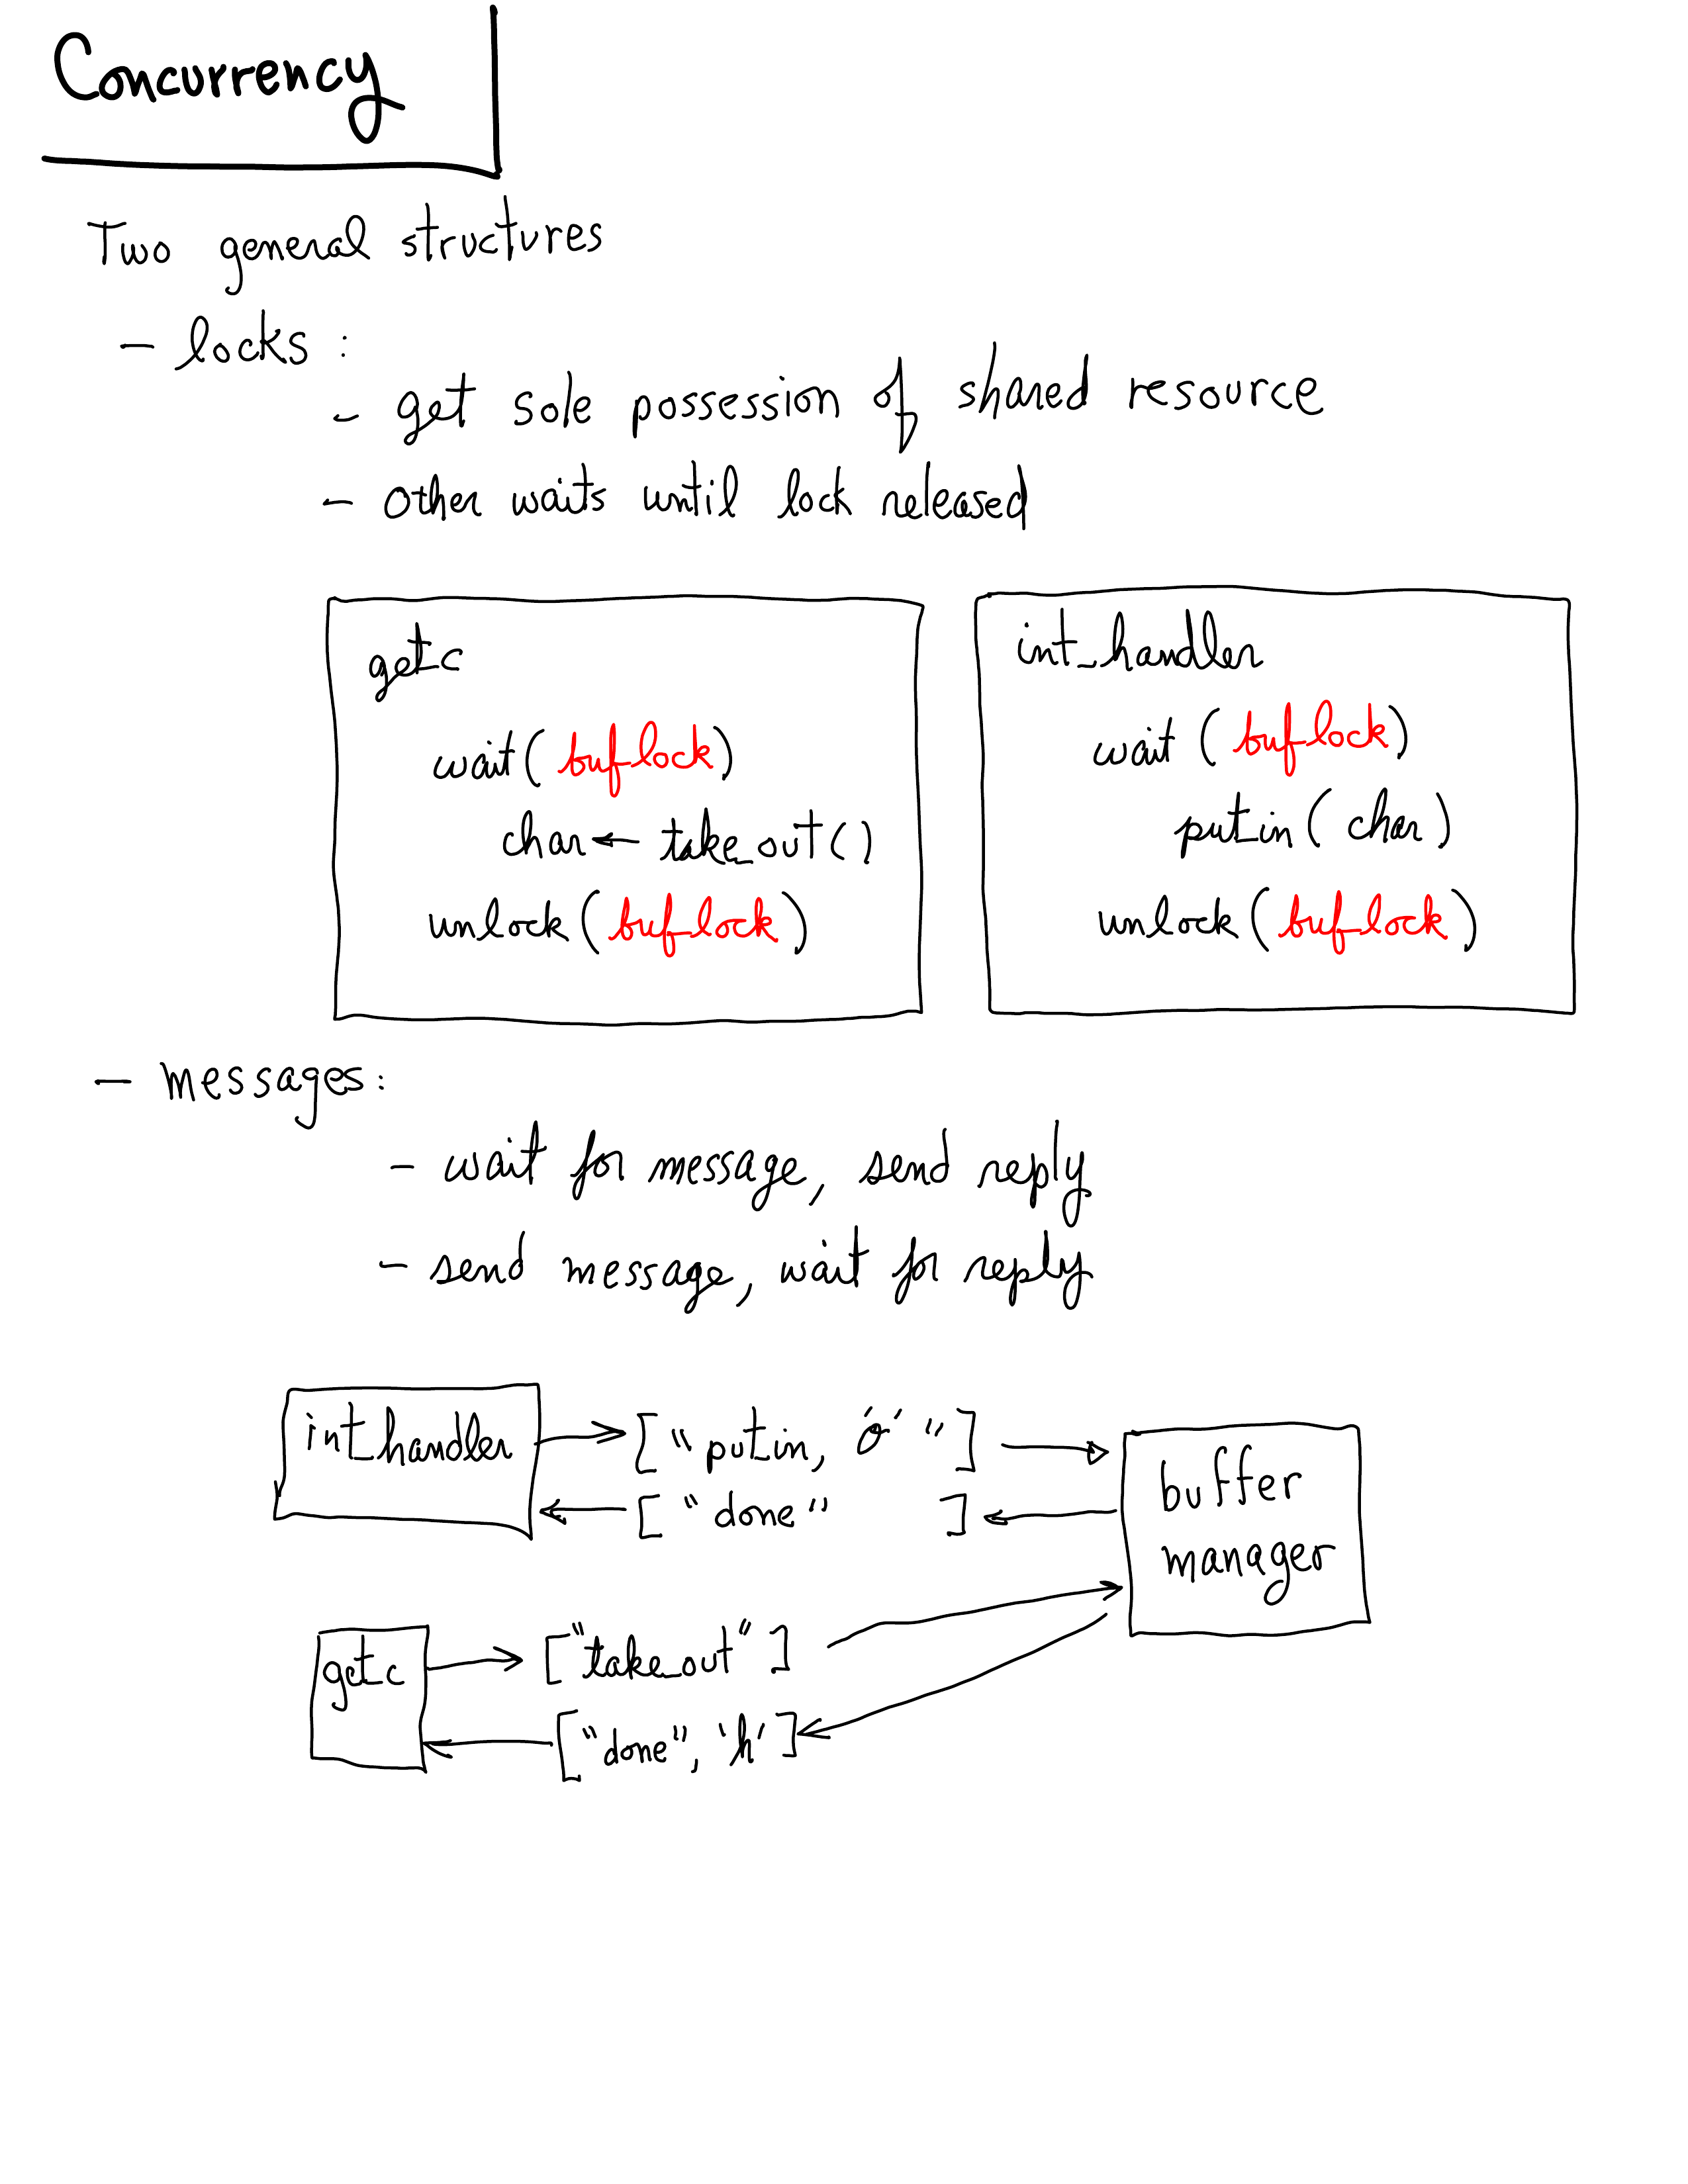 Concurrency
Two general structures
- locks :
- get sole possession of shared resource
- other waits until lock released
get_c
wait( buf_lock)
char ← take_out()
unlock (buf_lock)
int_handler
wait ( buf_lock)
put_in( char)
unlock (buf_lock)
- messages:
- wait for message, send reply
- send message, wait for reply
int_handler
["put_in, 'o' "]
["done" ]
buffer
manager
get_c
["take_out"]
["done", 'h']